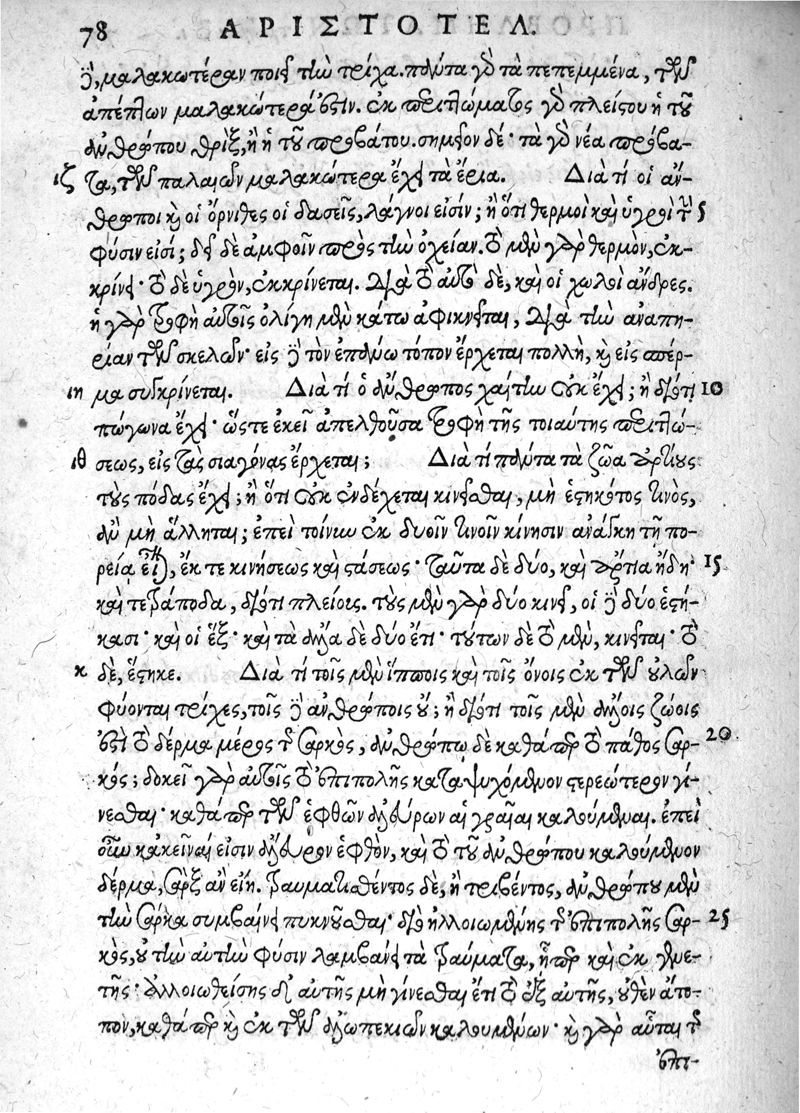 78 ΑΡΙΣΤΟΤΕΛ.
δὲ, μαλακωτέραν ποιεῖ τὴν τρίχα. πάντα γὰρ τὰ πεπεμμένα, τῶν
ἀπέπτων μαλακώτερά ἐστιν. ἐκ περιττώματος γὰρ πλείστου ἡ τοῦ
ἀνθρώπου θρὶξ, ἢ ἡ τοῦ προβάτου. σημεῖον δέ· τὰ γὰρ νέα πρόβα-
ιζ τα, τῶν παλαιῶν μαλακώτερα ἔχει τὰ ἔρια. Διὰ τί οἱ ἄν-
θρωποι καὶ οἱ ὄρνιθες οἱ δασεῖς, λάγνοι εἰσίν; ἢ ὅτι θερμοὶ καὶ ὑγροὶ τὴν 5
φύσιν εἰσί; δεῖ δὲ ἀμφοῖν πρὸς τὴν ὀχείαν. τὸ μὲν γὰρ θερμὸν, ἐκ-
κρίνει· τὸ δὲ ὑγρὸν, ἐκκρίνεται. Διὰ τὸ αὐτὸ δὲ, καὶ οἱ χωλοὶ ἄνδρες.
ἡ γὰρ τροφὴ αὐτοῖς ὀλίγη μὲν κάτω ἀφικνεῖται, διὰ τὴν ἀναπη-
ρίαν τῶν σκελῶν· εἰς δὲ τὸν ἐπάνω τόπον ἔρχεται πολλὴ, καὶ εἰς σπέρ-
ιη μα συγκρίνεται. Διὰ τί ὁ ἄνθρωπος χαίτην οὐκ ἔχει; ἢ διότι 10
πώγωνα ἔχει· ὥστε ἐκεῖ ἀπελθοῦσα τροφὴ τῆς τοιαύτης περιττώ-
ιθ σεως, εἰς τὰς σιαγόνας ἔρχεται; Διὰ τί πάντα τὰ ζῶα ἀρτίους
τοὺς πόδας ἔχει; ἢ ὅτι οὐκ ἐνδέχεται κινεῖσθαι, μὴ ἑστηκότος τινὸς,
ἂν μὴ ἅλληται; ἐπεὶ τοίνυν ἐκ δυοῖν τινοῖν κίνησιν ἀνάγκη τῇ πο-
ρείᾳ εἶναι, ἔκ τε κινήσεως καὶ στάσεως· ταῦτα δὲ δύο, καὶ ἄρτια ἤδη· 15
καὶ τετράποδα, διότι πλείους. τοὺς μὲν γὰρ δύο κινεῖ, οἱ δὲ δύο ἑστή-
κασι· καὶ οἱ ἕξ· καὶ τὰ ἄλλα δὲ δύο ἔτι· τούτων δὲ τὸ μὲν, κινεῖται· τὸ
κ δὲ, ἕστηκε. Διὰ τί τοῖς μὲν ἵπποις καὶ τοῖς ὄνοις ἐκ τῶν οὐλῶν
φύονται τρίχες, τοῖς δὲ ἀνθρώποις οὔ; ἢ διότι τοῖς μὲν ἄλλοις ζώοις
ἐστὶ τὸ δέρμα μέρος τῆς σαρκὸς, ἀνθρώπῳ δὲ καθάπερ τὸ πάθος σαρ- 20
κός; δοκεῖ γὰρ αὐτοῖς τὸ ἐπιπολῆς καταψυχόμενον στερεώτερον γί-
νεσθαι· καθάπερ τῶν ἑφθῶν ἀλεύρων αἱ γραῖαι καλούμεναι. ἐπεὶ
οὖν κἀκεῖναί εἰσιν ἄλευρον ἑφθὸν, καὶ τὸ τοῦ ἀνθρώπου καλούμενον
δέρμα, σὰρξ ἂν εἴη. τραυματισθέντος δὲ, ἢ τριβέντος, ἀνθρώπου μὲν
τὴν σάρκα συμβαίνει πυκνοῦσθαι· διὸ ἠλλοιωμένης τῆς ἐπιπολῆς σαρ- 25
κὸς, οὐ τὴν αὐτὴν φύσιν λαμβάνει τὰ τραύματα, ἥπερ καὶ ἐκ γενε-
τῆς· ἀλλοιωθείσης δὲ αὐτῆς μὴ γίνεσθαι ἔτι τὸ ἐξ αὐτῆς, οὐθὲν ἄτο-
πον, καθάπερ καὶ ἐκ τῶν ἀλωπεκιῶν καλουμένων· καὶ γὰρ αὗται τῆς
ἐπι-